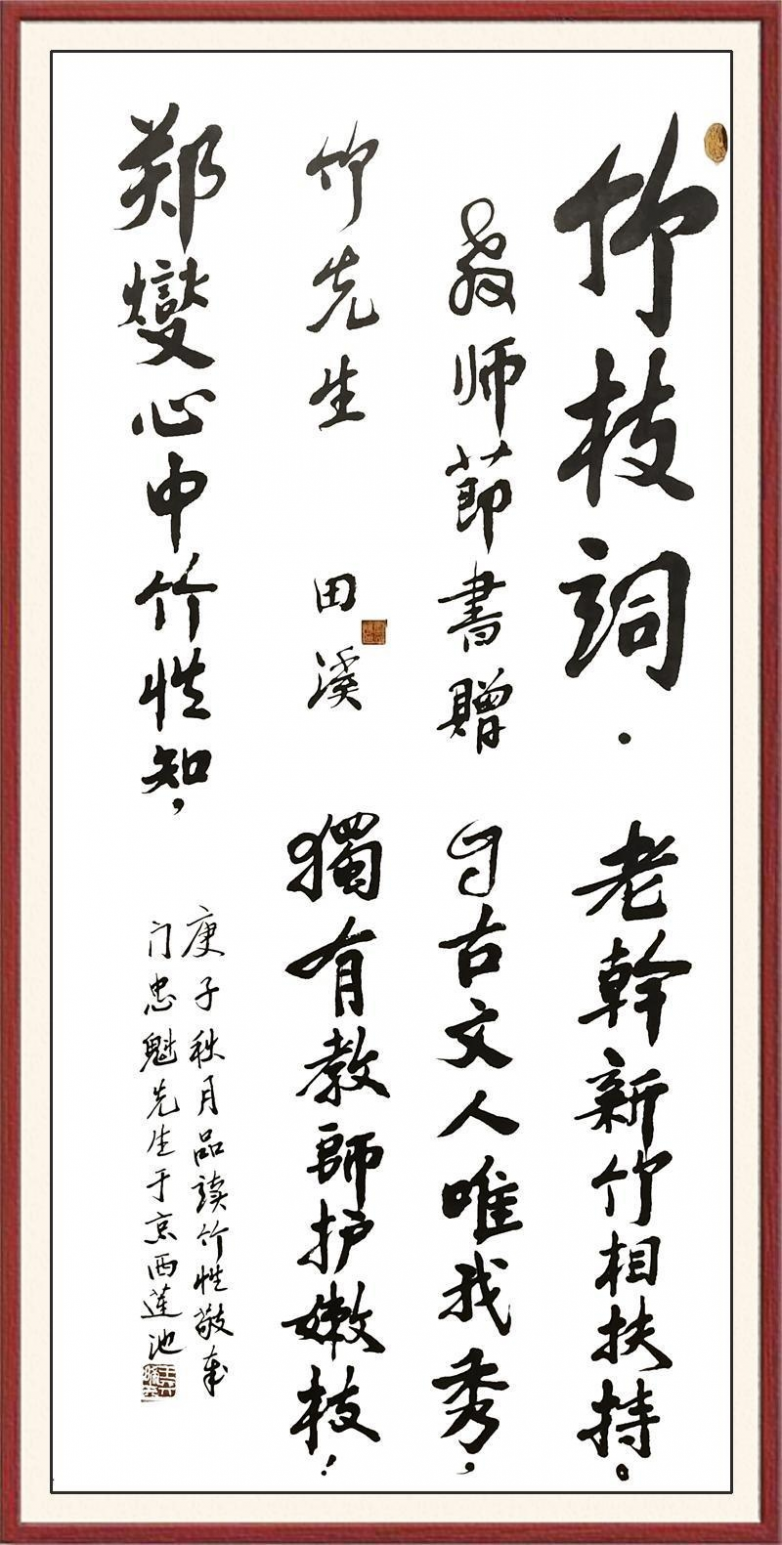 竹枝詞. 老幹新竹相扶持。
教师節書贈 自古文人唯我秀,
竹先生 田溪 獨有教師护嫩枝!
郑燮心中竹性知,
庚子秋月品读竹性敬奉
门忠魁先生于京西蓮池